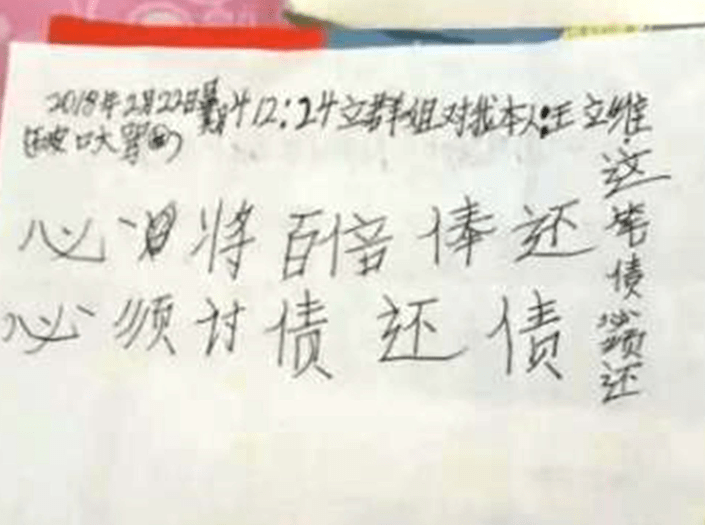 2018年2月22日星期4 12:24立群姐对我本人:王立维
(破口大骂)
必 将百倍俸还
必须讨债还债
这笔债必须还